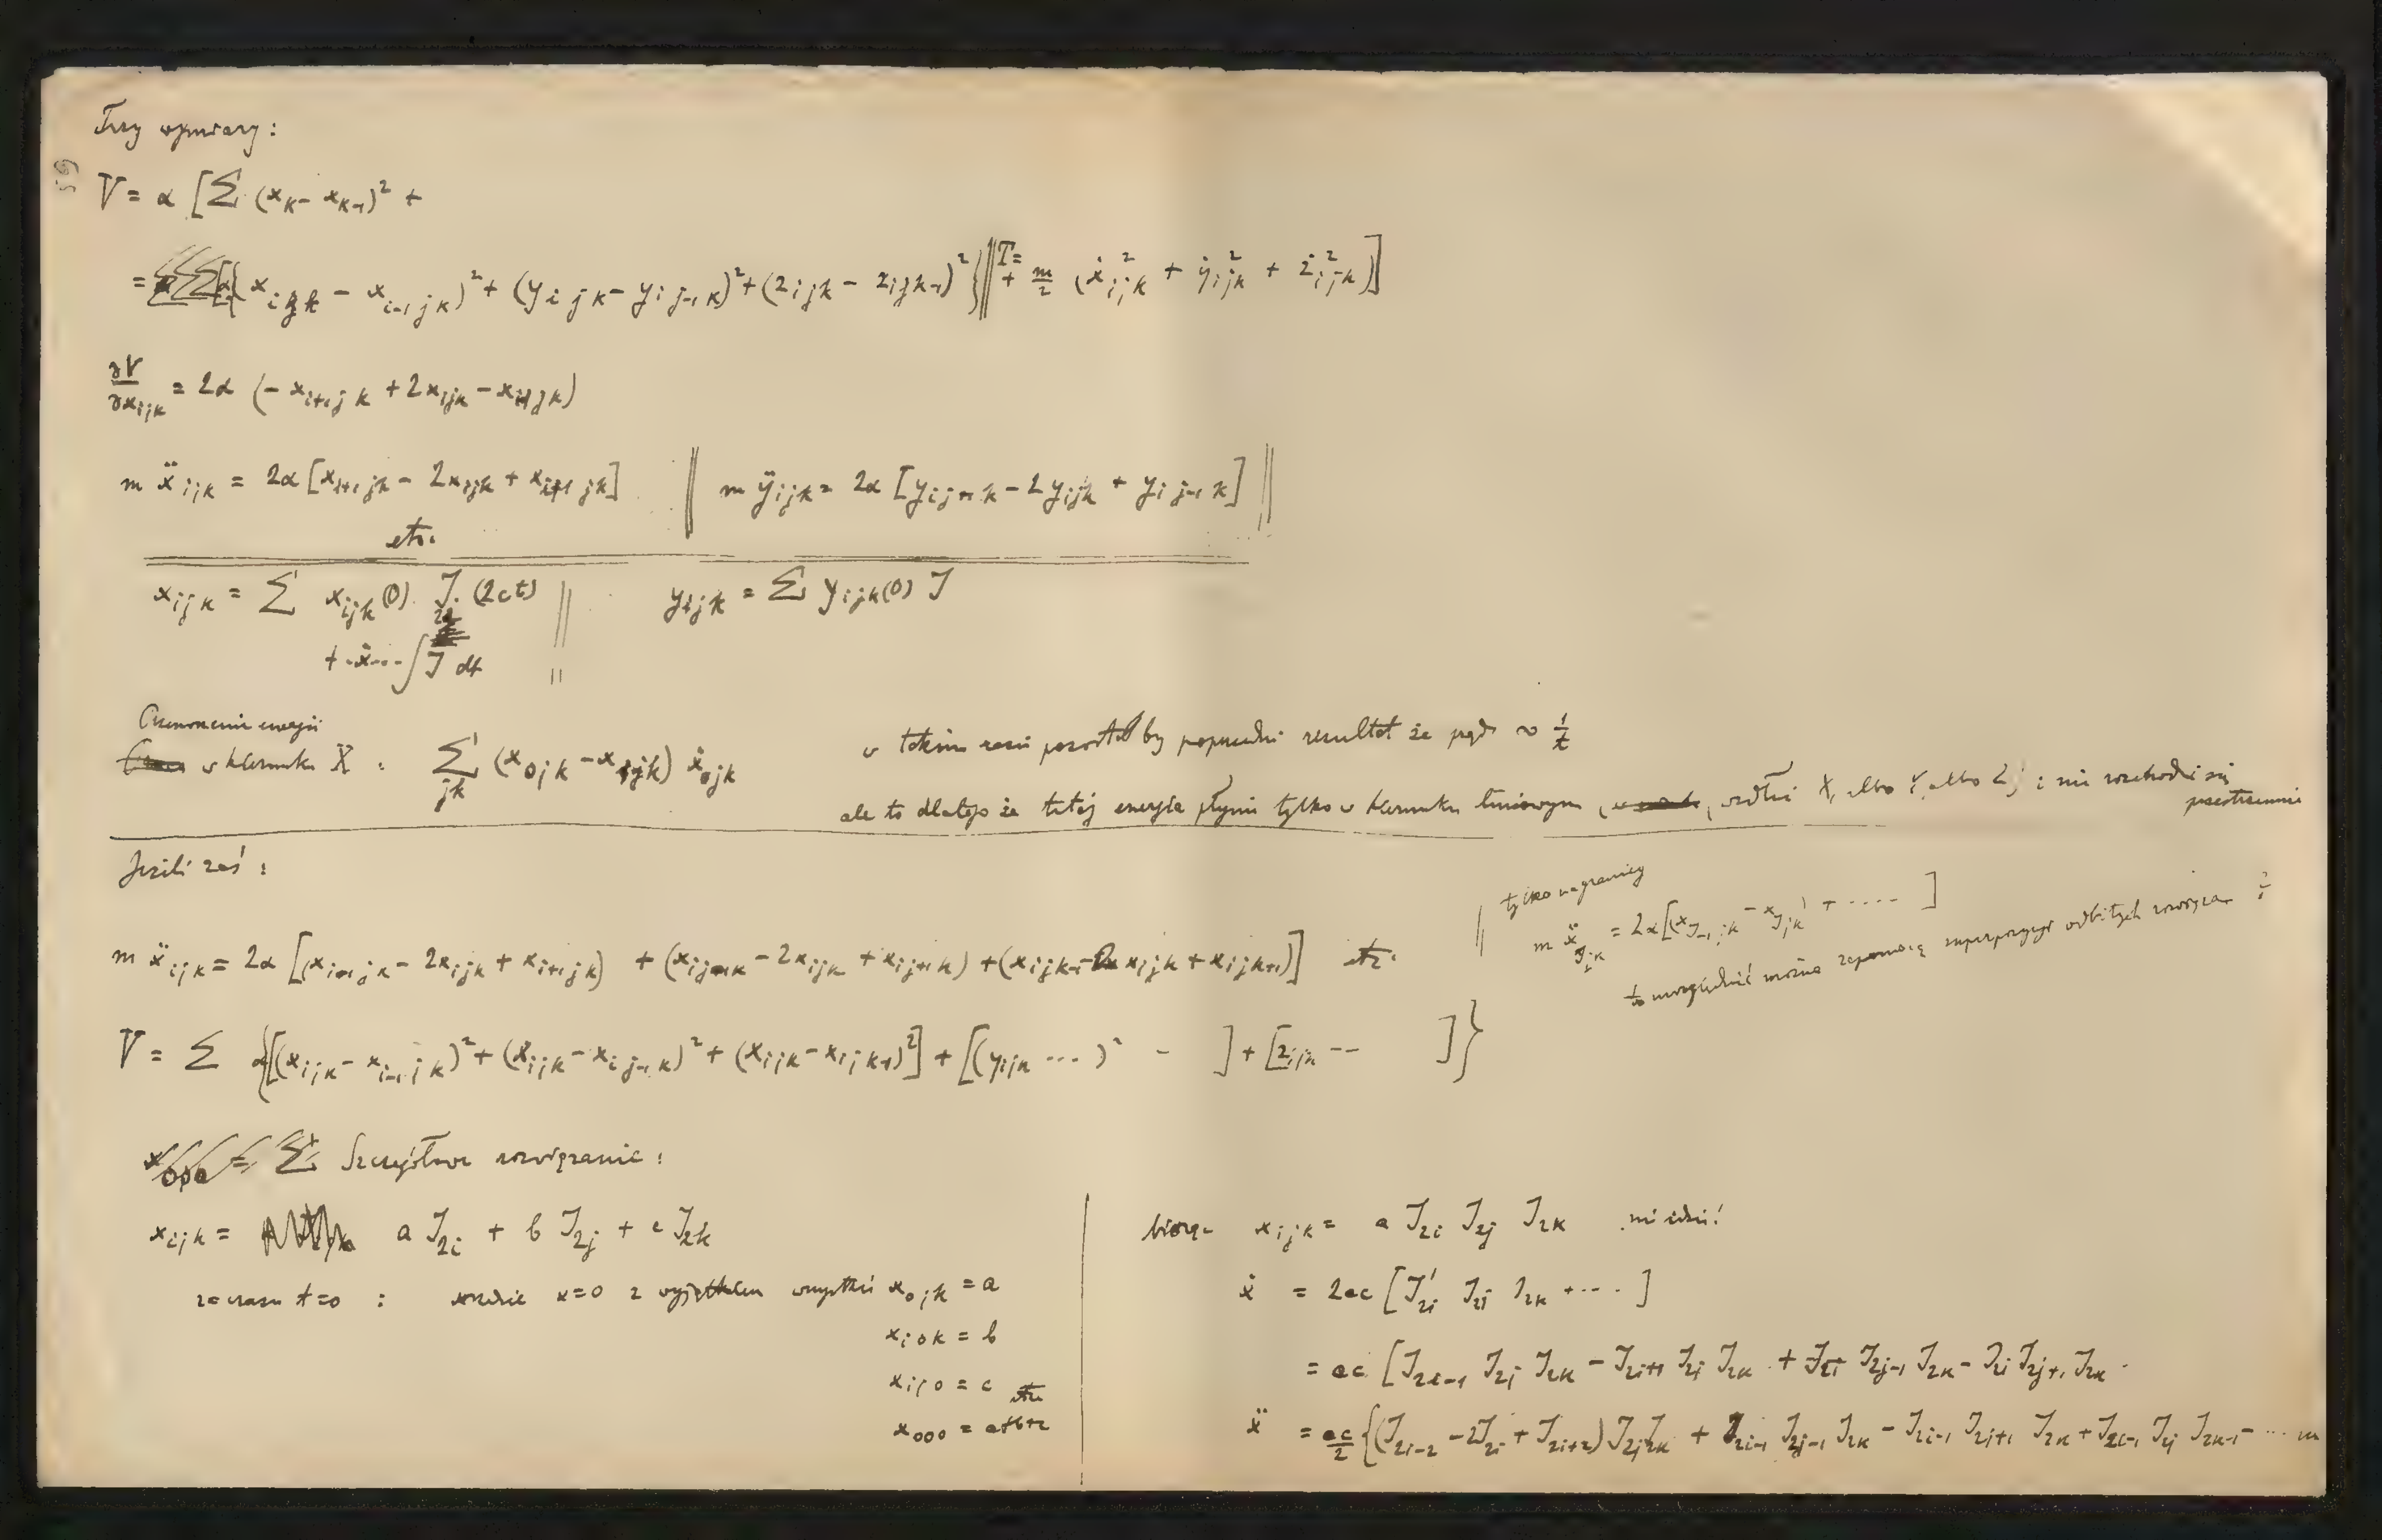 Trzy wymiary:
59
V = α [Σ (x_k - x_{k-1})² +
= ΣΣΣ [α{(x_{ijk} - x_{i-1 jk})² + (y_{ijk} - y_{i j-1 k})² + (z_{ijk} - z_{ijk-1})²} || T= + m/2 (ẋ²_{ijk} + ẏ²_{ijk} + ż²_{ijk})]
∂V/∂x_{ijk} = 2α (- x_{i+1 jk} + 2x_{ijk} - x_{i-1 jk})
m ẍ_{ijk} = 2α [x_{i+1 jk} - 2x_{ijk} + x_{i-1 jk}] || m ÿ_{ijk} = 2α [y_{ij+1 k} - 2y_{ijk} + y_{i j-1 k}] ||
etc.
x_{ijk} = Σ x_{ijk}(0) J_{2i} (2ct) || y_{ijk} = Σ y_{ijk}(0) J
+ ẋ--- ∫J dt
Przenoszenie energii
w kierunku X : Σ_{jk} (x_{0jk} - x_{1jk}) ẋ_{0jk}
w takim razie pozostałby poprzedni rezultat że prąd ∾ 1/t
ale to dlatego że tutaj energia płynie tylko w kierunku liniowym, wzdłuż X, albo Y, albo Z; i nie rozchodzi się
przestrzennie
Jeżeli zaś :
m ẍ_{ijk} = 2α [(x_{i-1 jk} - 2x_{ijk} + x_{i+1 jk}) + (x_{ij-1 k} - 2x_{ijk} + x_{ij+1 k}) + (x_{ijk-1} - 2x_{ijk} + x_{ijk+1})] etc.
|| tylko na granicy
m ẍ_{Jjk} = 2α [(x_{J-1 jk} - x_{Jjk}) + ..... ]
to uwzględnić można zapomocą superpozycyi odbitych rozwiąza
V = Σ α{[(x_{ijk} - x_{i-1 jk})² + (x_{ijk} - x_{i j-1 k})² + (x_{ijk} - x_{ijk-1})²] + [(y_{ijk} ...)² - ] + [z_{ijk} -- ]}
x_{000} = Σ Szczegółowe rozwiązanie :
x_{ijk} = a J_{2i} + b J_{2j} + c J_{2k}
z czasu t=0 : wszędzie x=0 z wyjątkiem wszystkich x_{0jk} = a
x_{i0k} = b
x_{ij0} = c etc
x_{000} = a+b+c
biorąc x_{ijk} = a J_{2i} J_{2j} J_{2k} nie idzie!
ẋ = 2ac [J'_{2i} J_{2j} J_{2k} + .... ]
= ac [J_{2i-1} J_{2j} J_{2k} - J_{2i+1} J_{2j} J_{2k} + J_{2i} J_{2j-1} J_{2k} - J_{2i} J_{2j+1} J_{2k} .
ẍ = ac/2 {(J_{2i-2} - 2J_{2i} + J_{2i+2}) J_{2j} J_{2k} + J_{2i-1} J_{2j-1} J_{2k} - J_{2i-1} J_{2j+1} J_{2k} + J_{2i-1} J_{2j} J_{2k-1} - ...